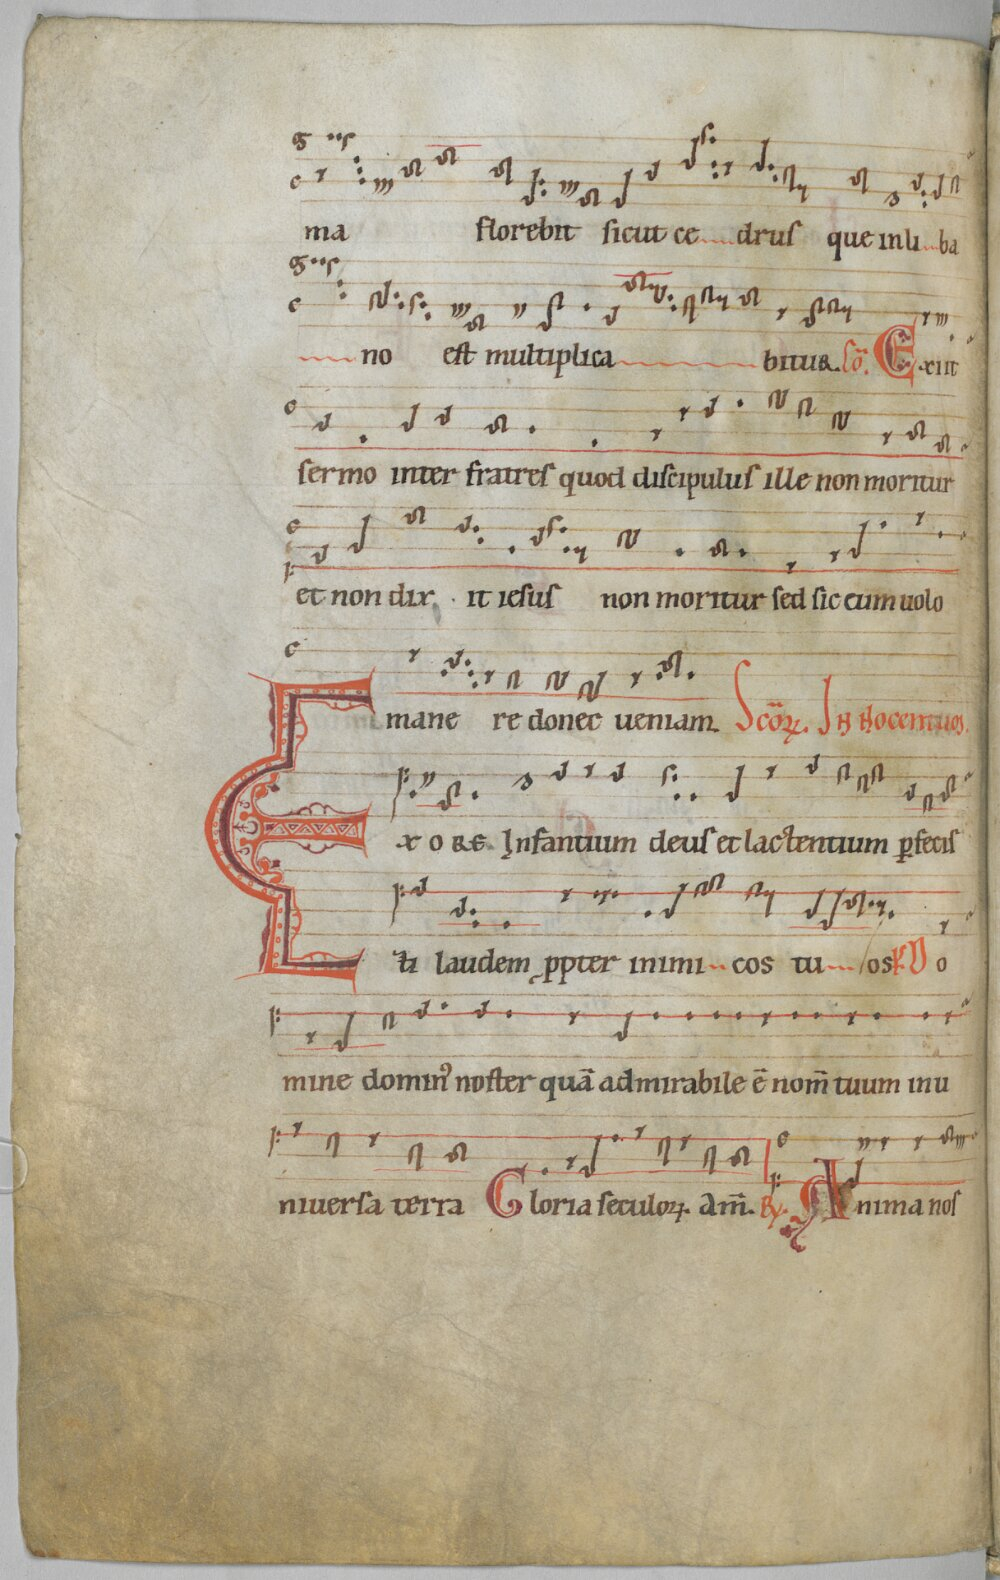 ma florebit sicut ce drus que in li ba
no est multiplica bitur. Cō. Exiit
sermo inter fratres quod discipulus ille non moritur
et non dix it iesus non moritur sed sic eum uolo
mane re donec ueniam. Scōꝝ. Innocentuos.
EX ORE Infantium deus et lactentium ꝑfecis
ti laudem ꝓpter inimi cos tu os Do
mine domin⁹ noster quā admirabile ē nom̄ tuum inu
niuersa terra Gloria seculoꝝ. Am̄. ℟. Anima nos